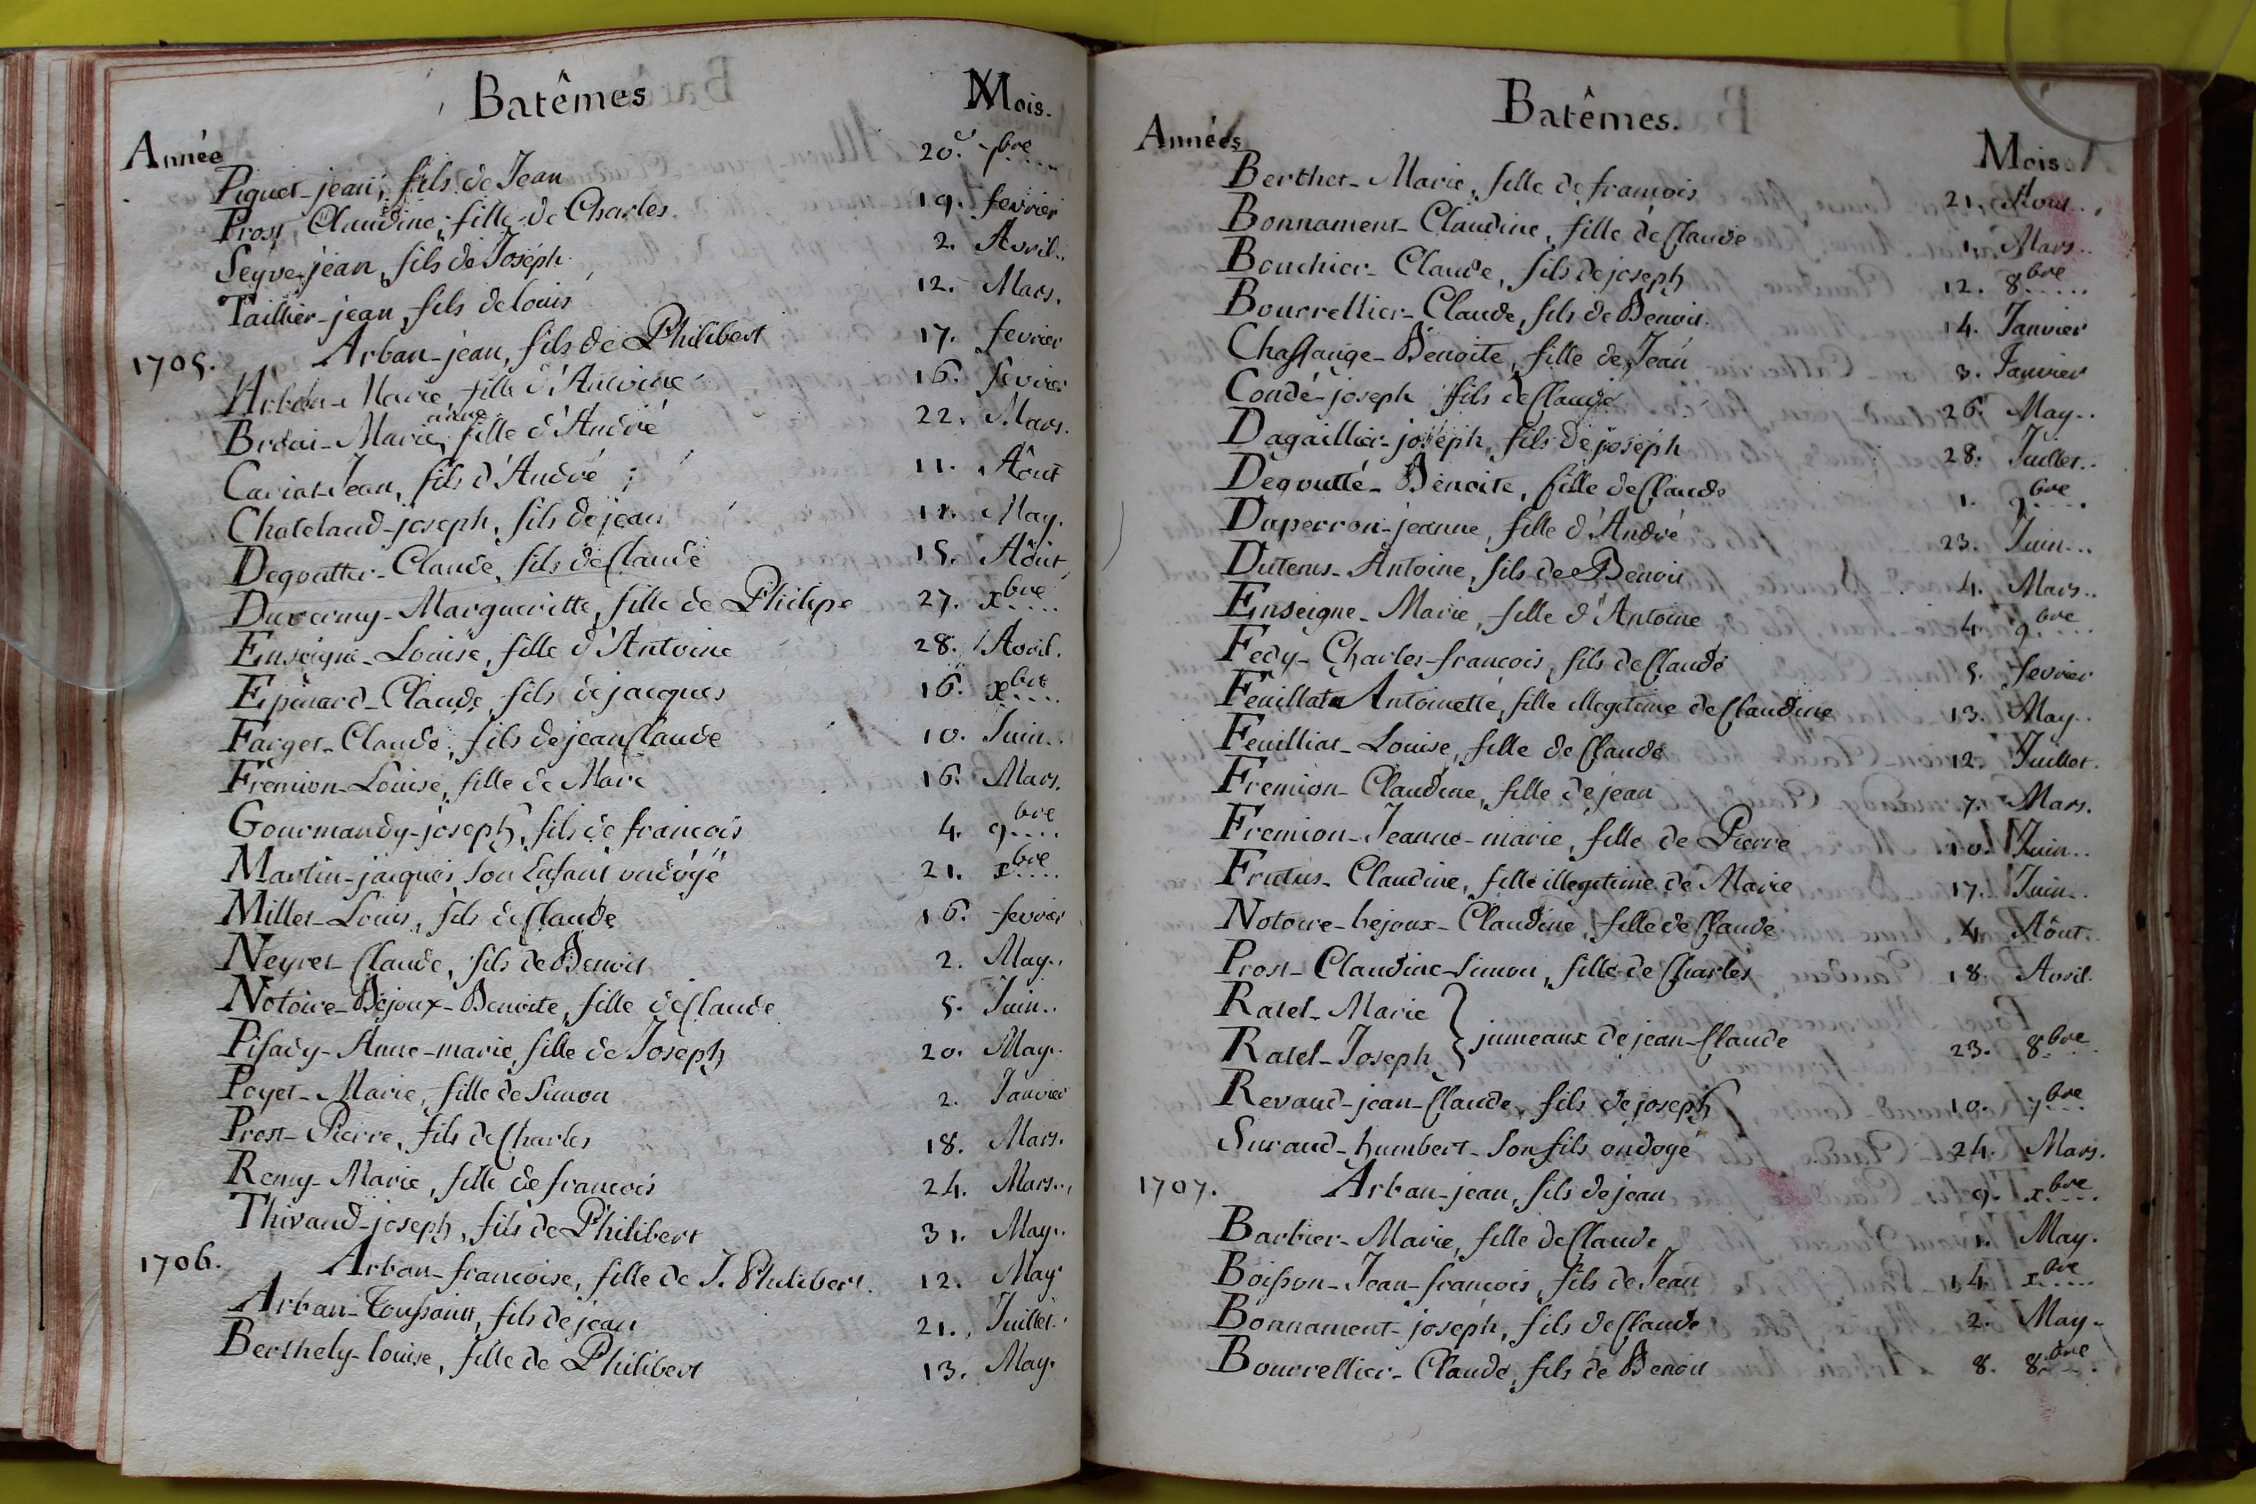 Batêmes
Mois.
Année
Piquet-jean, fils de Jean 20. 7bre....
Prost, Claudine, fille de Charles 19. fevrier
Seyve-jean, fils de Joseph 2. Avril..
Taillier-jean, fils de louis 12. Mars.
1705. Arban-jean, fils de Philibert 17. fevrier
Arban-Marie, fille d'Antoine 16. fevrier
Brdai-Marie anne, fille d'André 22. Mars.
Cariat-Jean, fils d'André ; 11. Aôut
Chateland-joseph, fils de jean 11. May.
Degoutter-Claude, fils de Claude 15. Aôut
Duvermy-Margueritte, fille de Philipe 27. xbre....
Enseigne-Louise, fille d'Antoine 28. Avril.
Epinard-Claude, fils de jacques 16. xbre....
Farget-Claude, fils de jean Claude 10. Juin..
Fremion-Louise, fille de Marc 16. Mars.
Gourmandy-joseph, fils de francois 4. 9bre....
Martin-jacques, son Enfant ondoyé 21. xbre....
Millet-Louis, fils de Claude 16. fevrier
Neyret-Claude, fils de Benoit 2. May..
Notoire-Bejoux-Benoite, fille de Claude 5. Juin..
Pisady-Anne-marie, fille de Joseph 20. May..
Poyet-Marie, fille de Simon 2. Janvier
Prost-Pierre, fils de Charles 18. Mars.
Remy-Marie, fille de francois 24. Mars..
Thivaud-joseph, fils de Philibert 31. May..
1706. Arban-francoise, fille de J. Philibert. 12. May
Arban-Toussaint, fils de jean 21. Juillet..
Berthely-louise, fille de Philibert 13. May.
Batêmes.
Années
Mois
Berthet-Marie, fille de francois 21. Aout..
Bonnament-Claudine, fille de Claude 1. Mars..
Bouchier-Claude, fils de joseph 12. 8bre.....
Bourrellier-Claude, fils de Benoit. 14. Janvier
Chassange-Benoite, fille de Jean 3. Janvier
Condé-joseph fils de Claude 26. May..
Dagaillier-joseph, fils de joseph 28. Juillet..
Degoutté-Benoite, fille de Claude 1. 9bre....
Duperron-jeanne, fille d'André 23. Juin...
Dutems-Antoine, fils de Benoit 4. Mars..
Enseigne-Marie, fille d'Antoine 4. 9bre....
Fedy-Charles-francois, fils de Claude 5. fevrier
Feuillat Antoinette, fille illegitime de Claudine 13. May..
Feuilliat-Louise, fille de Claude 12. Juillet.
Fremion-Claudine, fille de jean 7. Mars.
Fremion-Jeanne-marie, fille de Pierre 10. Juin..
Frutus-Claudine, fille illegitime de Marie 17. Juin..
Notoire-bejoux-Claudine, fille de Claude 4. Aôut..
Prost-Claudine-Simon, fille de Charles 18. Avril.
Ratel-Marie
jumeaux de jean-Claude 23. 8bre
Ratel-Joseph
Revaud-jean-Claude, fils de joseph 10. 7bre....
Suraud-humbert-son fils ondoyé 24. Mars.
1707. Arban-jean, fils de jean 9. xbre....
Barbier-Marie, fille de Claude 1. May.
Boisson-Jean-francois, fils de Jean 14. xbre....
Bonnament-joseph, fils de Claude 2. May.
Bourrellier-Claude, fils de Benoit 8. 8bre....